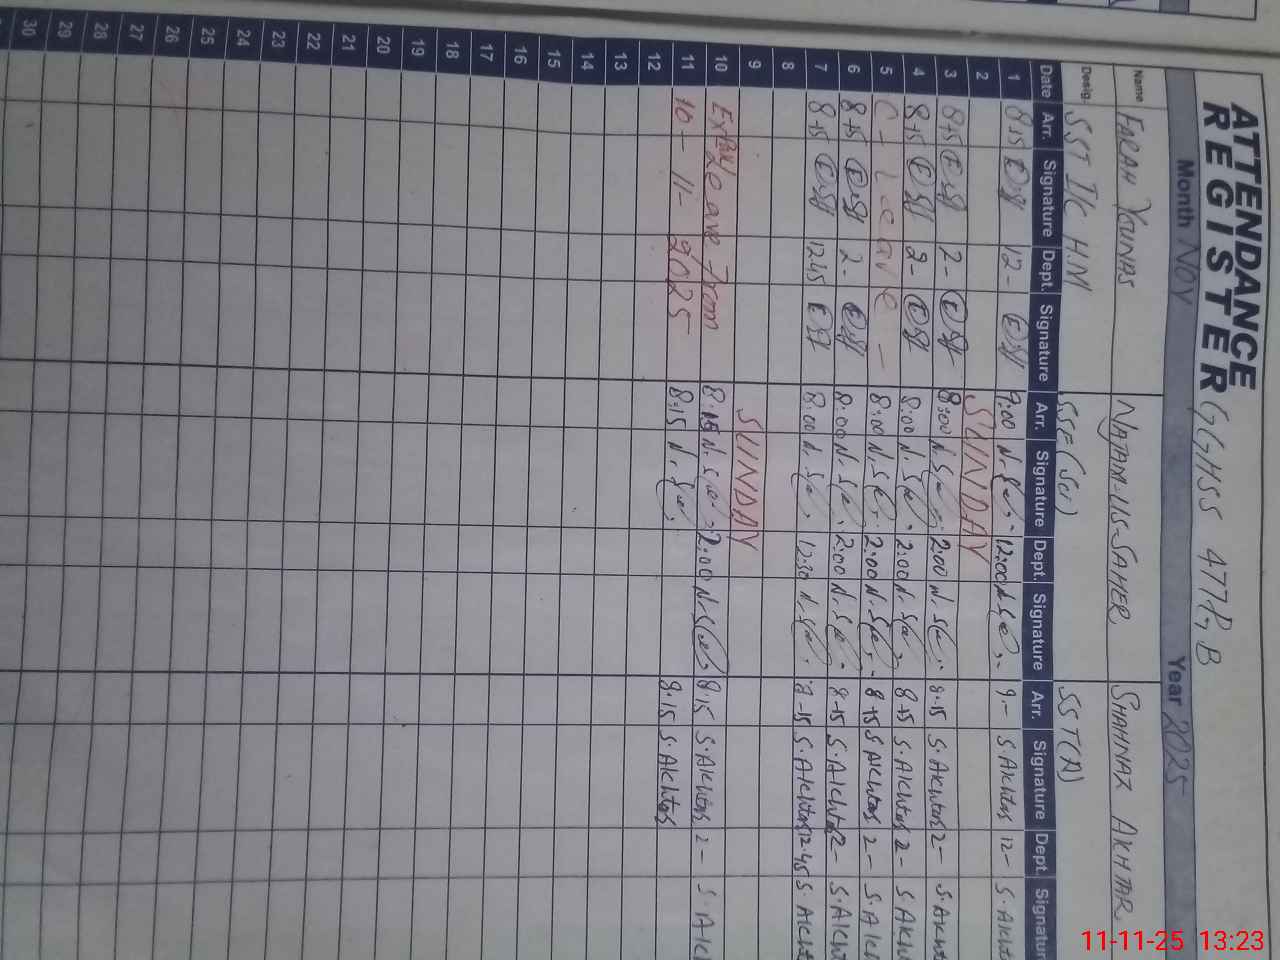 ATTENDANCE REGISTER GGHSS 477 G B
Month NOV Year 2025
Name FARAH YOUNAS NAJAM-US-SAHER SHAHNAZ AKHTAR
Desig. SST I/C H.M SSE (Sci) SST(A)
Date Arr. Signature Dept. Signature Arr. Signature Dept. Signature Arr. Signature Dept. Signature
1 8-15 12- 9:00 12:00 9- S.Akhtar 12- S.Akht
2 SUNDAY
3 8-15 2- 8:00 2:00 8-15 S.Akhtar 2- S.Akht
4 8-15 2- 8:00 2:00 8-15 S.Akhtar 2- S.Akht
5 C - Leave - 8:00 2:00 8-15 S.Akhtar 2- S.Akh
6 8-15 2- 8:00 2:00 8-15 S.Akhtar 2- S.Akht
7 8-15 12.45 8:00 12:30 8-15 S.Akhtar 12.45 S.Akht
8
9 SUNDAY
10 Leave from 8:15 2:00 8.15 S.Akhtar 2- S.Ak
11 10-11-2025 8:15 8.15 S.Akhtar
12
13
14
15
16
17
18
19
20
21
22
23
24
25
26
27
28
29
30
11-11-25 13:23